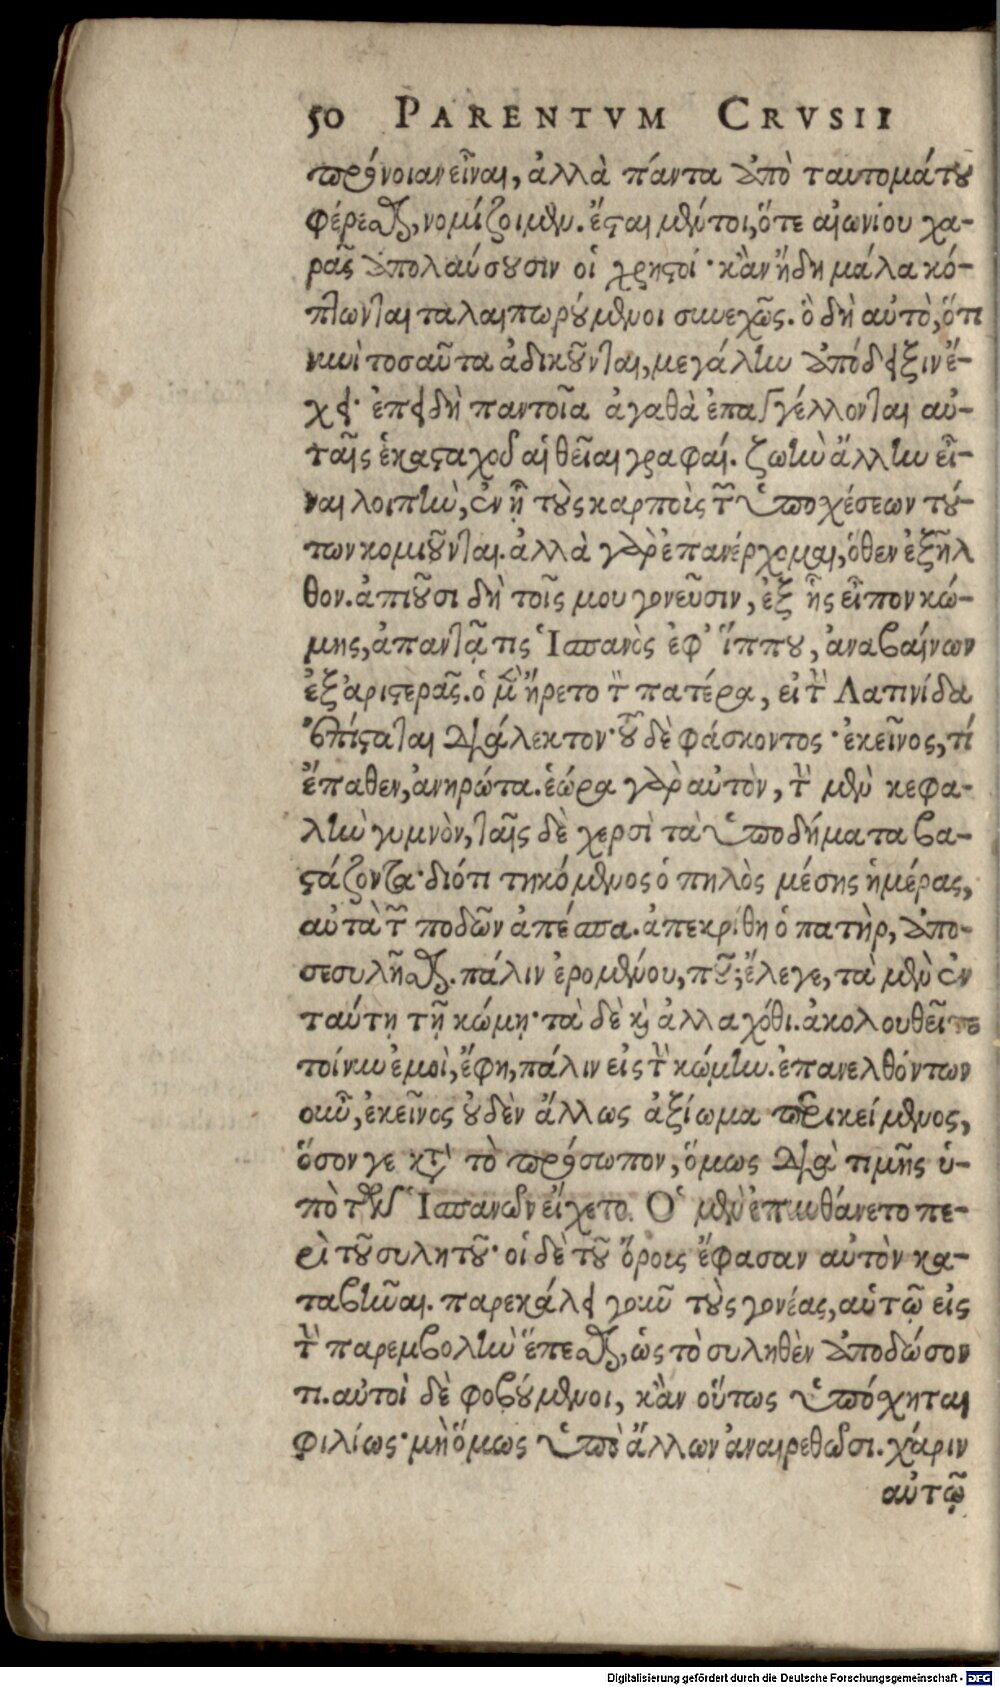 50 PARENTVM CRVSII
πρόνοιαν εἶναι, ἀλλὰ πάντα ἀπὸ ταυτομάτου
φέρεσθαι, νομίζοιμεν. ἔσται μέντοι, ὅτε αἰωνίου χα-
ρᾶς ἀπολαύσουσιν οἱ χρηστοί· κἂν ἤδη μάλα κό-
πτωνται ταλαιπωρούμενοι συνεχῶς. ὃ δὴ αὐτὸ, ὅτι
νυνὶ τοσαῦτα ἀδικοῦνται, μεγάλην ἀπόδειξιν ἔ-
χει· ἐπεὶ δὴ παντοῖα ἀγαθὰ ἐπαγγέλλονται αὐ-
ταῖς ἑκασταχοῦ αἱ θεῖαι γραφαί. ζωὴν ἄλλην εἶ-
ναι λοιπὴν, ἐν ᾗ τοὺς καρποὺς τῶν ὑποσχέσεων τού-
των κομιοῦνται. ἀλλὰ γὰρ ἐπανέρχομαι, ὅθεν ἐξῆλ
θον. ἀπιοῦσι δὴ τοῖς μου γονεῦσιν, ἐξ ἧς εἶπον κώ-
μης, ἀπαντᾷ τις Ἱσπανὸς ἐφ' ἵππου, ἀναβαίνων
ἐξ ἀριστερᾶς. ὁ μὲν ἤρετο τὸν πατέρα, εἰ τὴν Λατινίδα
ἐπίσταται διάλεκτον· οὗ δὲ φάσκοντος· ἐκεῖνος, τί
ἔπαθεν, ἀνηρώτα. ἑώρα γὰρ αὐτὸν, τὴν μὲν κεφα-
λὴν γυμνὸν, ταῖς δὲ χερσὶ τὰ ὑποδήματα βα-
στάζοντα· διότι τηκόμενος ὁ πηλὸς μέσης ἡμέρας,
αὐτὰ τῶν ποδῶν ἀπέσπα. ἀπεκρίθη ὁ πατὴρ, ἀπο-
σεσυλῆσθαι. πάλιν ἐρομένου, ποῦ; ἔλεγε, τὰ μὲν ἐν
ταύτῃ τῇ κώμῃ· τὰ δὲ καὶ ἀλλαχόθι. ἀκολουθεῖτε
τοίνυν ἐμοὶ, ἔφη, πάλιν εἰς τὴν κώμην. ἐπανελθόντων
οὖν, ἐκεῖνος οὐδὲν ἄλλως ἀξίωμα περικείμενος,
ὅσον γε κατὰ τὸ πρόσωπον, ὅμως διὰ τιμῆς ὑ-
πὸ τῶν Ἱσπανῶν εἴχετο. Ὁ μὲν ἐπυνθάνετο πε-
ρὶ τοῦ συλητοῦ· οἱ δὲ τοῦ ὄρους ἔφασαν αὐτὸν κα-
ταβῆναι. παρεκάλει γοῦν τοὺς γονέας, αὑτῷ εἰς
τὴν παρεμβολὴν ἕπεσθαι, ὡς τὸ συληθὲν ἀποδώσον
τι. αὐτοὶ δὲ φοβούμενοι, κἂν οὕτως ὑπόσχηται
φιλίως· μὴ ὅμως ὑπὸ ἄλλων ἀναιρεθῶσι. χάριν
αὐτῷ
Digitalisierung gefördert durch die Deutsche Forschungsgemeinschaft - DFG